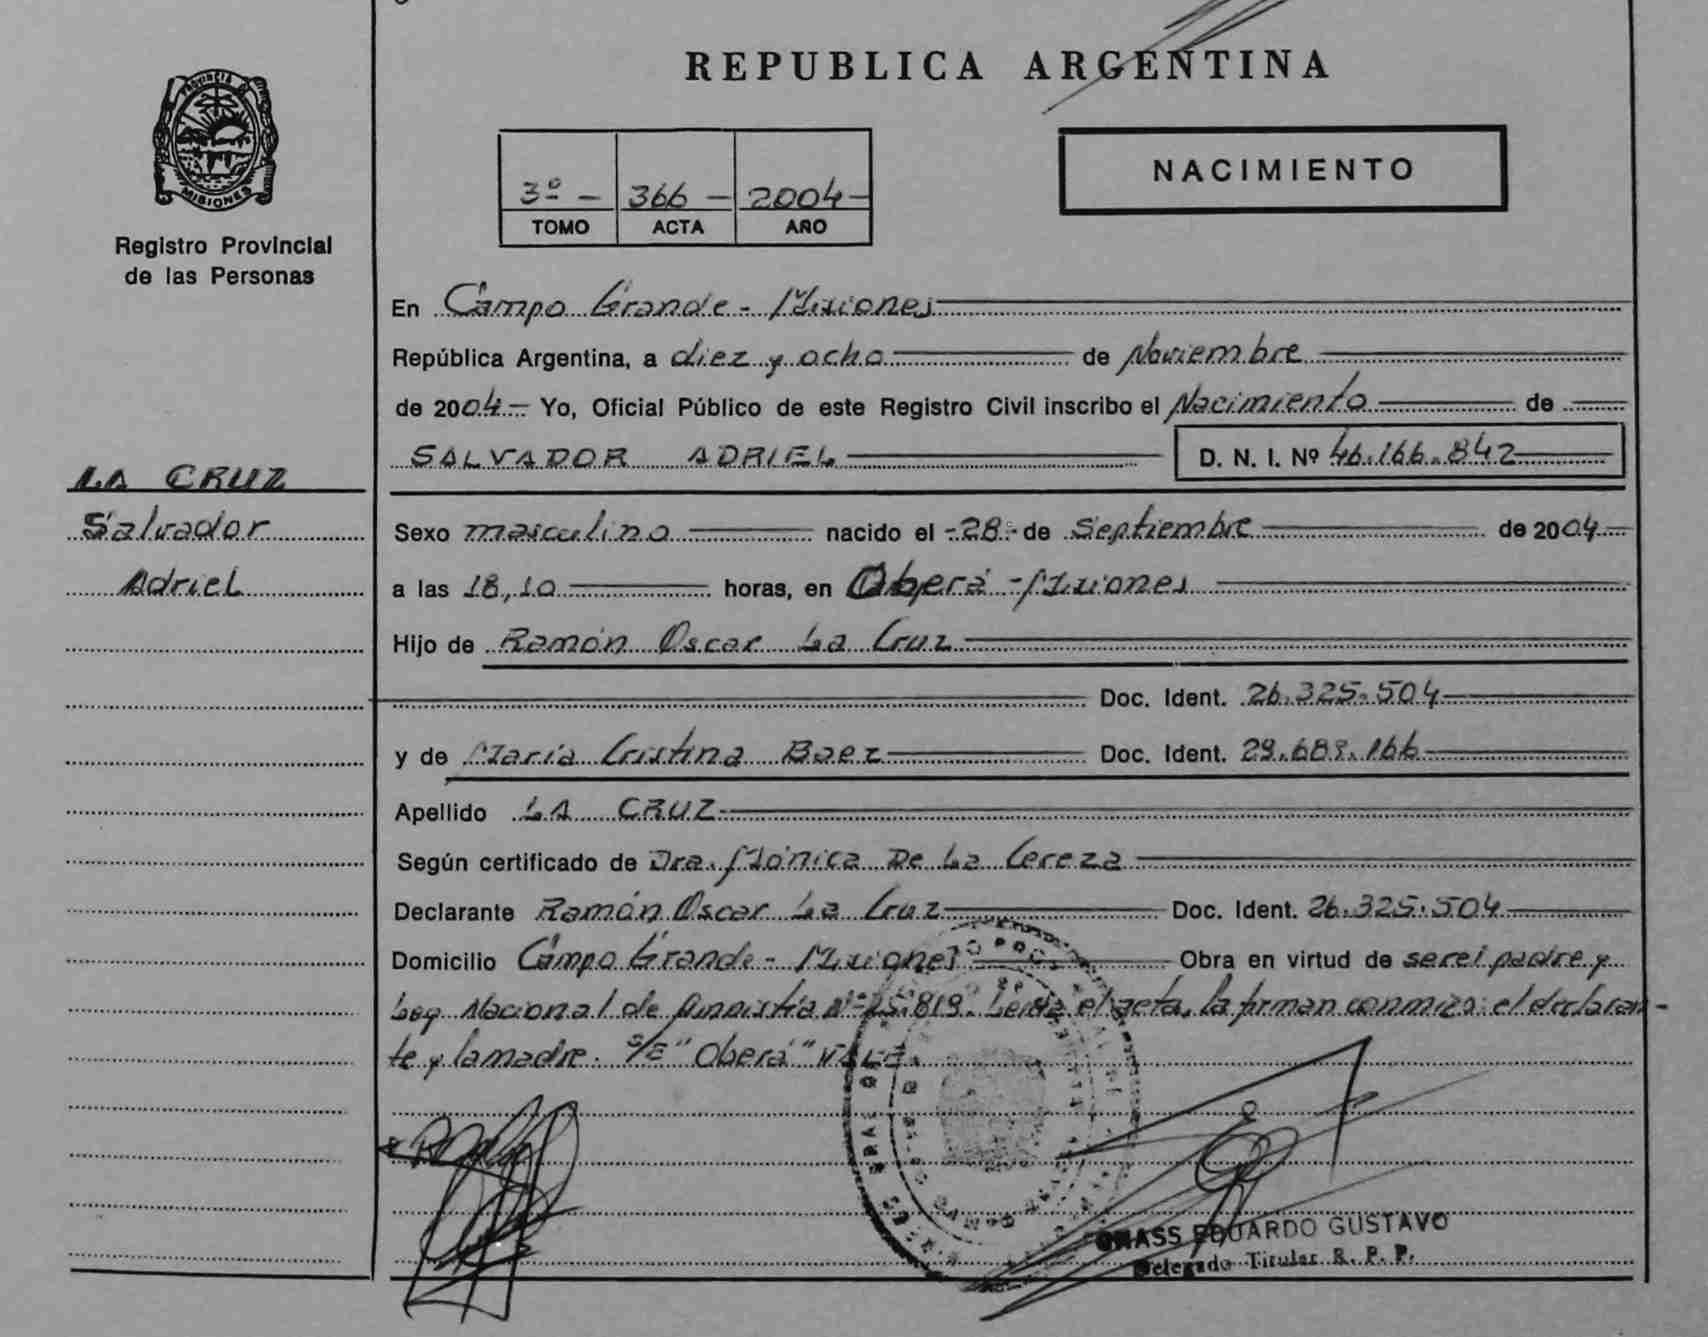 REPUBLICA ARGENTINA
PROVINCIA DE
MISIONES
Registro Provincial
de las Personas
3º - 366 - 2004 -
TOMO ACTA AÑO
NACIMIENTO
En Campo Grande - Misiones
República Argentina, a diez y ocho de Noviembre
de 2004 - Yo, Oficial Público de este Registro Civil inscribo el Nacimiento de
SALVADOR ADRIEL D. N. I. Nº 46.166.842
LA CRUZ
Salvador
Adriel
Sexo masculino nacido el -28- de Septiembre de 2004
a las 18,10 horas, en Oberá - Misiones
Hijo de Ramón Oscar La Cruz
Doc. Ident. 26.325.504
y de María Cristina Baez Doc. Ident. 29.689.166
Apellido LA CRUZ
Según certificado de Dra. Mónica De La Cereza
Declarante Ramón Oscar La Cruz Doc. Ident. 26.325.504
Domicilio Campo Grande - Misiones Obra en virtud de ser el padre y
Ley Nacional de Amnistía Nº 25.819. Leida el acta, la firman conmigo: el declaran-
te y la madre. S/E "Oberá" VALE.
GRASS EDUARDO GUSTAVO
Delegado Titular R. P. P.